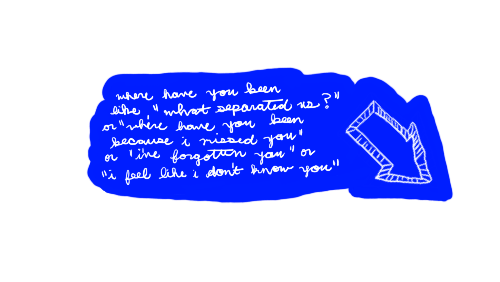 where have you been
like "what separated us?"
or "where have you been
because i missed you"
or "i've forgotten you" or
"i feel like i don't know you"